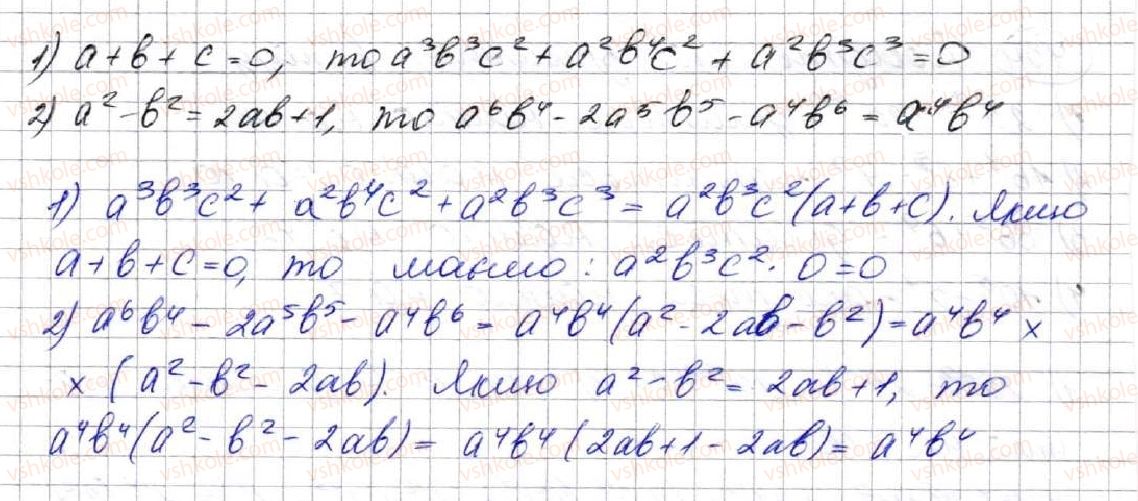 1) a+b+c=0, то a³b³c²+a²b⁴c²+a²b³c³=0
2) a²-b²=2ab+1, то a⁶b⁴-2a⁵b⁵-a⁴b⁶=a⁴b⁴
1) a³b³c²+a²b⁴c²+a²b³c³=a²b³c²(a+b+c). Якщо
a+b+c=0, то маємо: a²b³c²·0=0
2) a⁶b⁴-2a⁵b⁵-a⁴b⁶=a⁴b⁴(a²-2ab-b²)=a⁴b⁴×
×(a²-b²-2ab). Якщо a²-b²=2ab+1, то
a⁴b⁴(a²-b²-2ab)=a⁴b⁴(2ab+1-2ab)=a⁴b⁴
vshkole.com